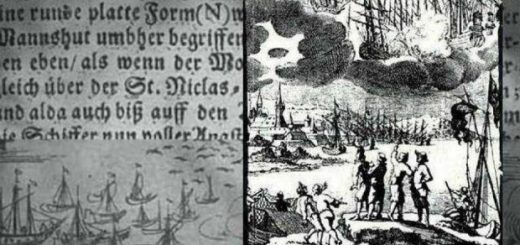 ine runde platte Form(N)w
Mannshut umbher begriffen
en eben/ als wenn der Mo
leich über der St. Niclas-
und alda auch biß auff den
ie Schiffer nun voller Angst